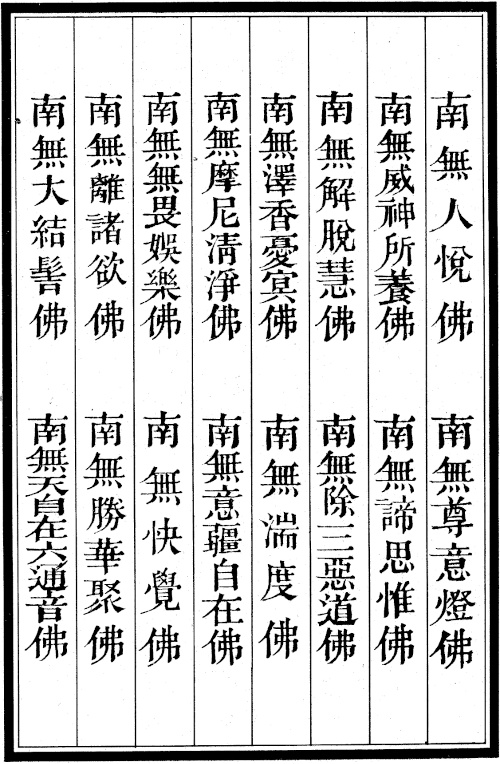 南無人悅佛 南無尊意燈佛
南無威神所養佛 南無諦思惟佛
南無解脫慧佛 南無除三惡道佛
南無澤香憂冥佛 南無湍度佛
南無摩尼淸淨佛 南無意疆自在佛
南無無畏娛樂佛 南無快覺佛
南無離諸欲佛 南無勝華聚佛
南無大結髻佛 南無天自在六通音佛